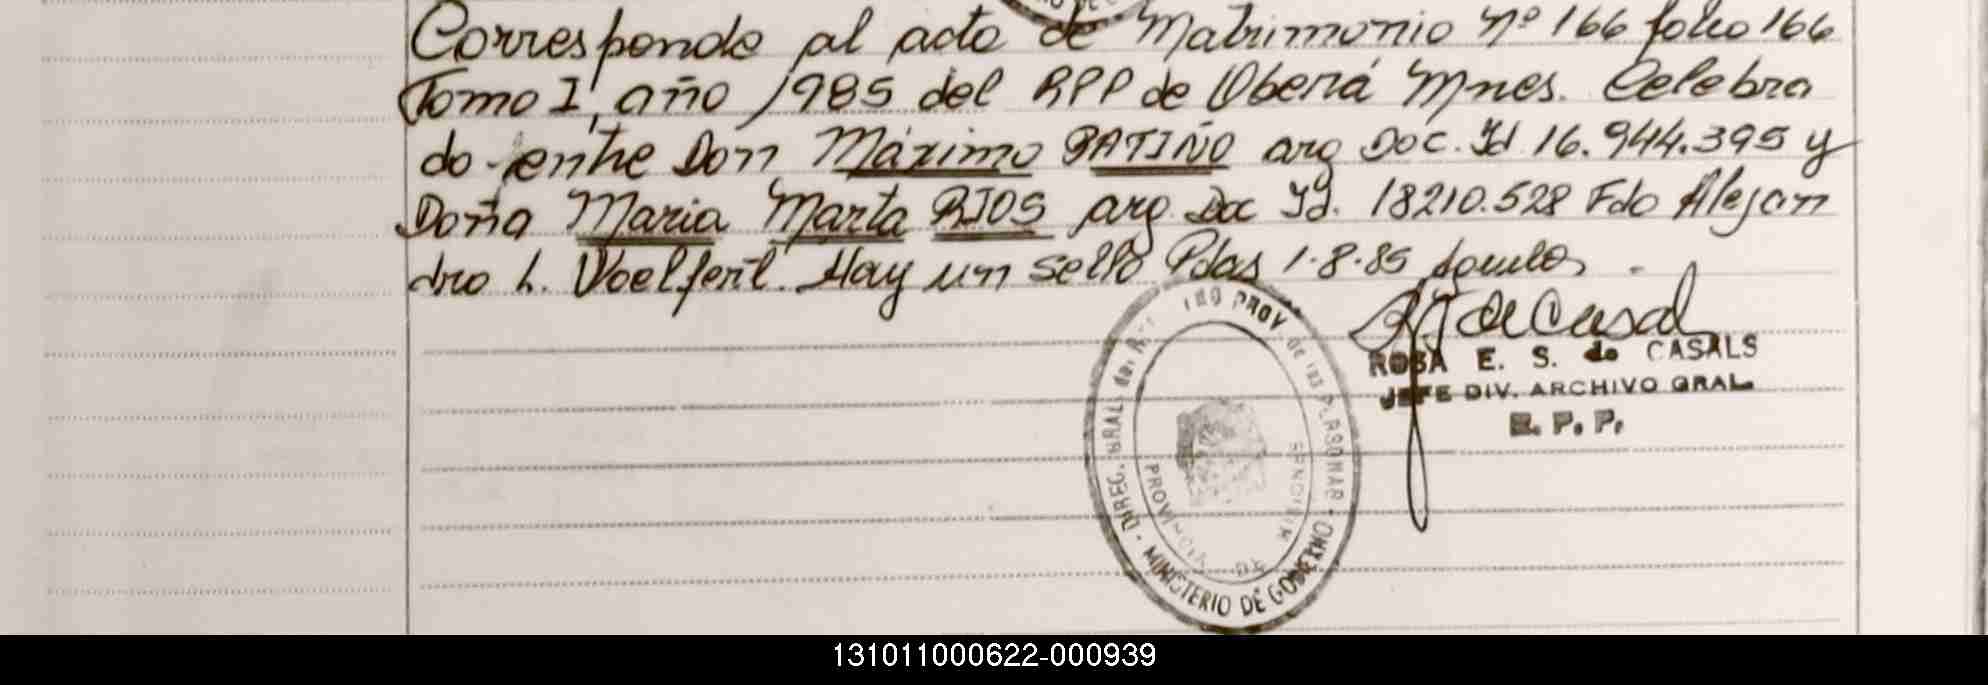 Corresponde al acta de Matrimonio Nº 166 folio 166
Tomo I, año 1985 del RPP de Oberá Mnes. Celebra
do entre Don Máximo PATIÑO arg Doc. Id 16.944.395 y
Doña Maria Marta RIOS arg Doc Id. 18210.528 Fdo Alejan
dro L. Voelferil. Hay un sello Pdas 1.8.85
ROSA E. S. de CASALS
JEFE DIV. ARCHIVO GRAL.
R. P. P.
DIREC. GRAL. del PROV de las PERSONAS · MINISTERIO DE GOBIERNO
PROVINCIA DE MISIONES
131011000622-000939